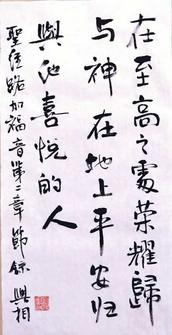 在至高之處荣耀歸
与神在地上平安归
與他喜悦的人
聖经路加福音第二章節錄